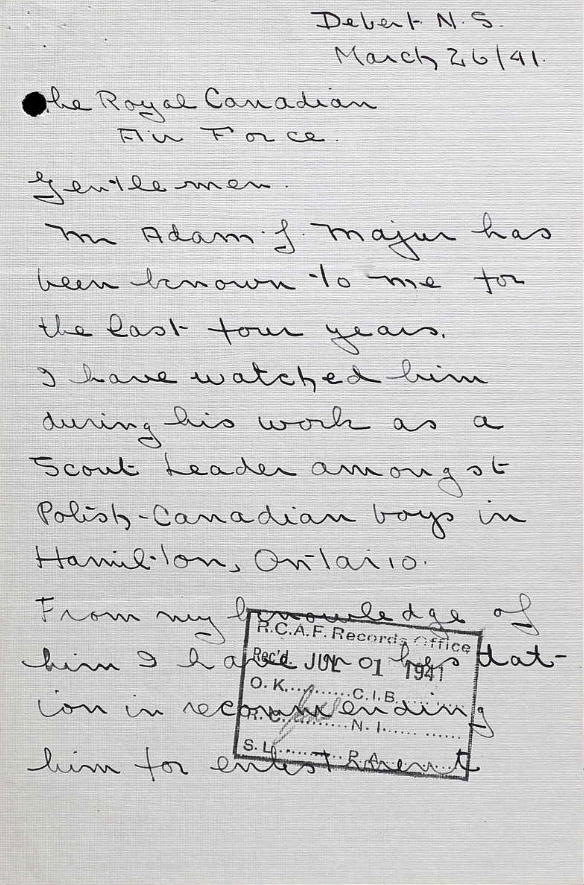 Debert N.S.
March 26/41.
The Royal Canadian
Air Force.
Gentlemen.
Mr Adam J. Majur has
been known to me for
the last four years.
I have watched him
during his work as a
Scout Leader amongst
Polish-Canadian boys in
Hamilton, Ontario.
From my knowledge of
him I have no hesitat-
ion in recommending
him for enlistment
R.C.A.F. Records Office
Rec'd JUN 01 1941
O.K. C.I.B.
R.C. N.I.
S.L. R.A.